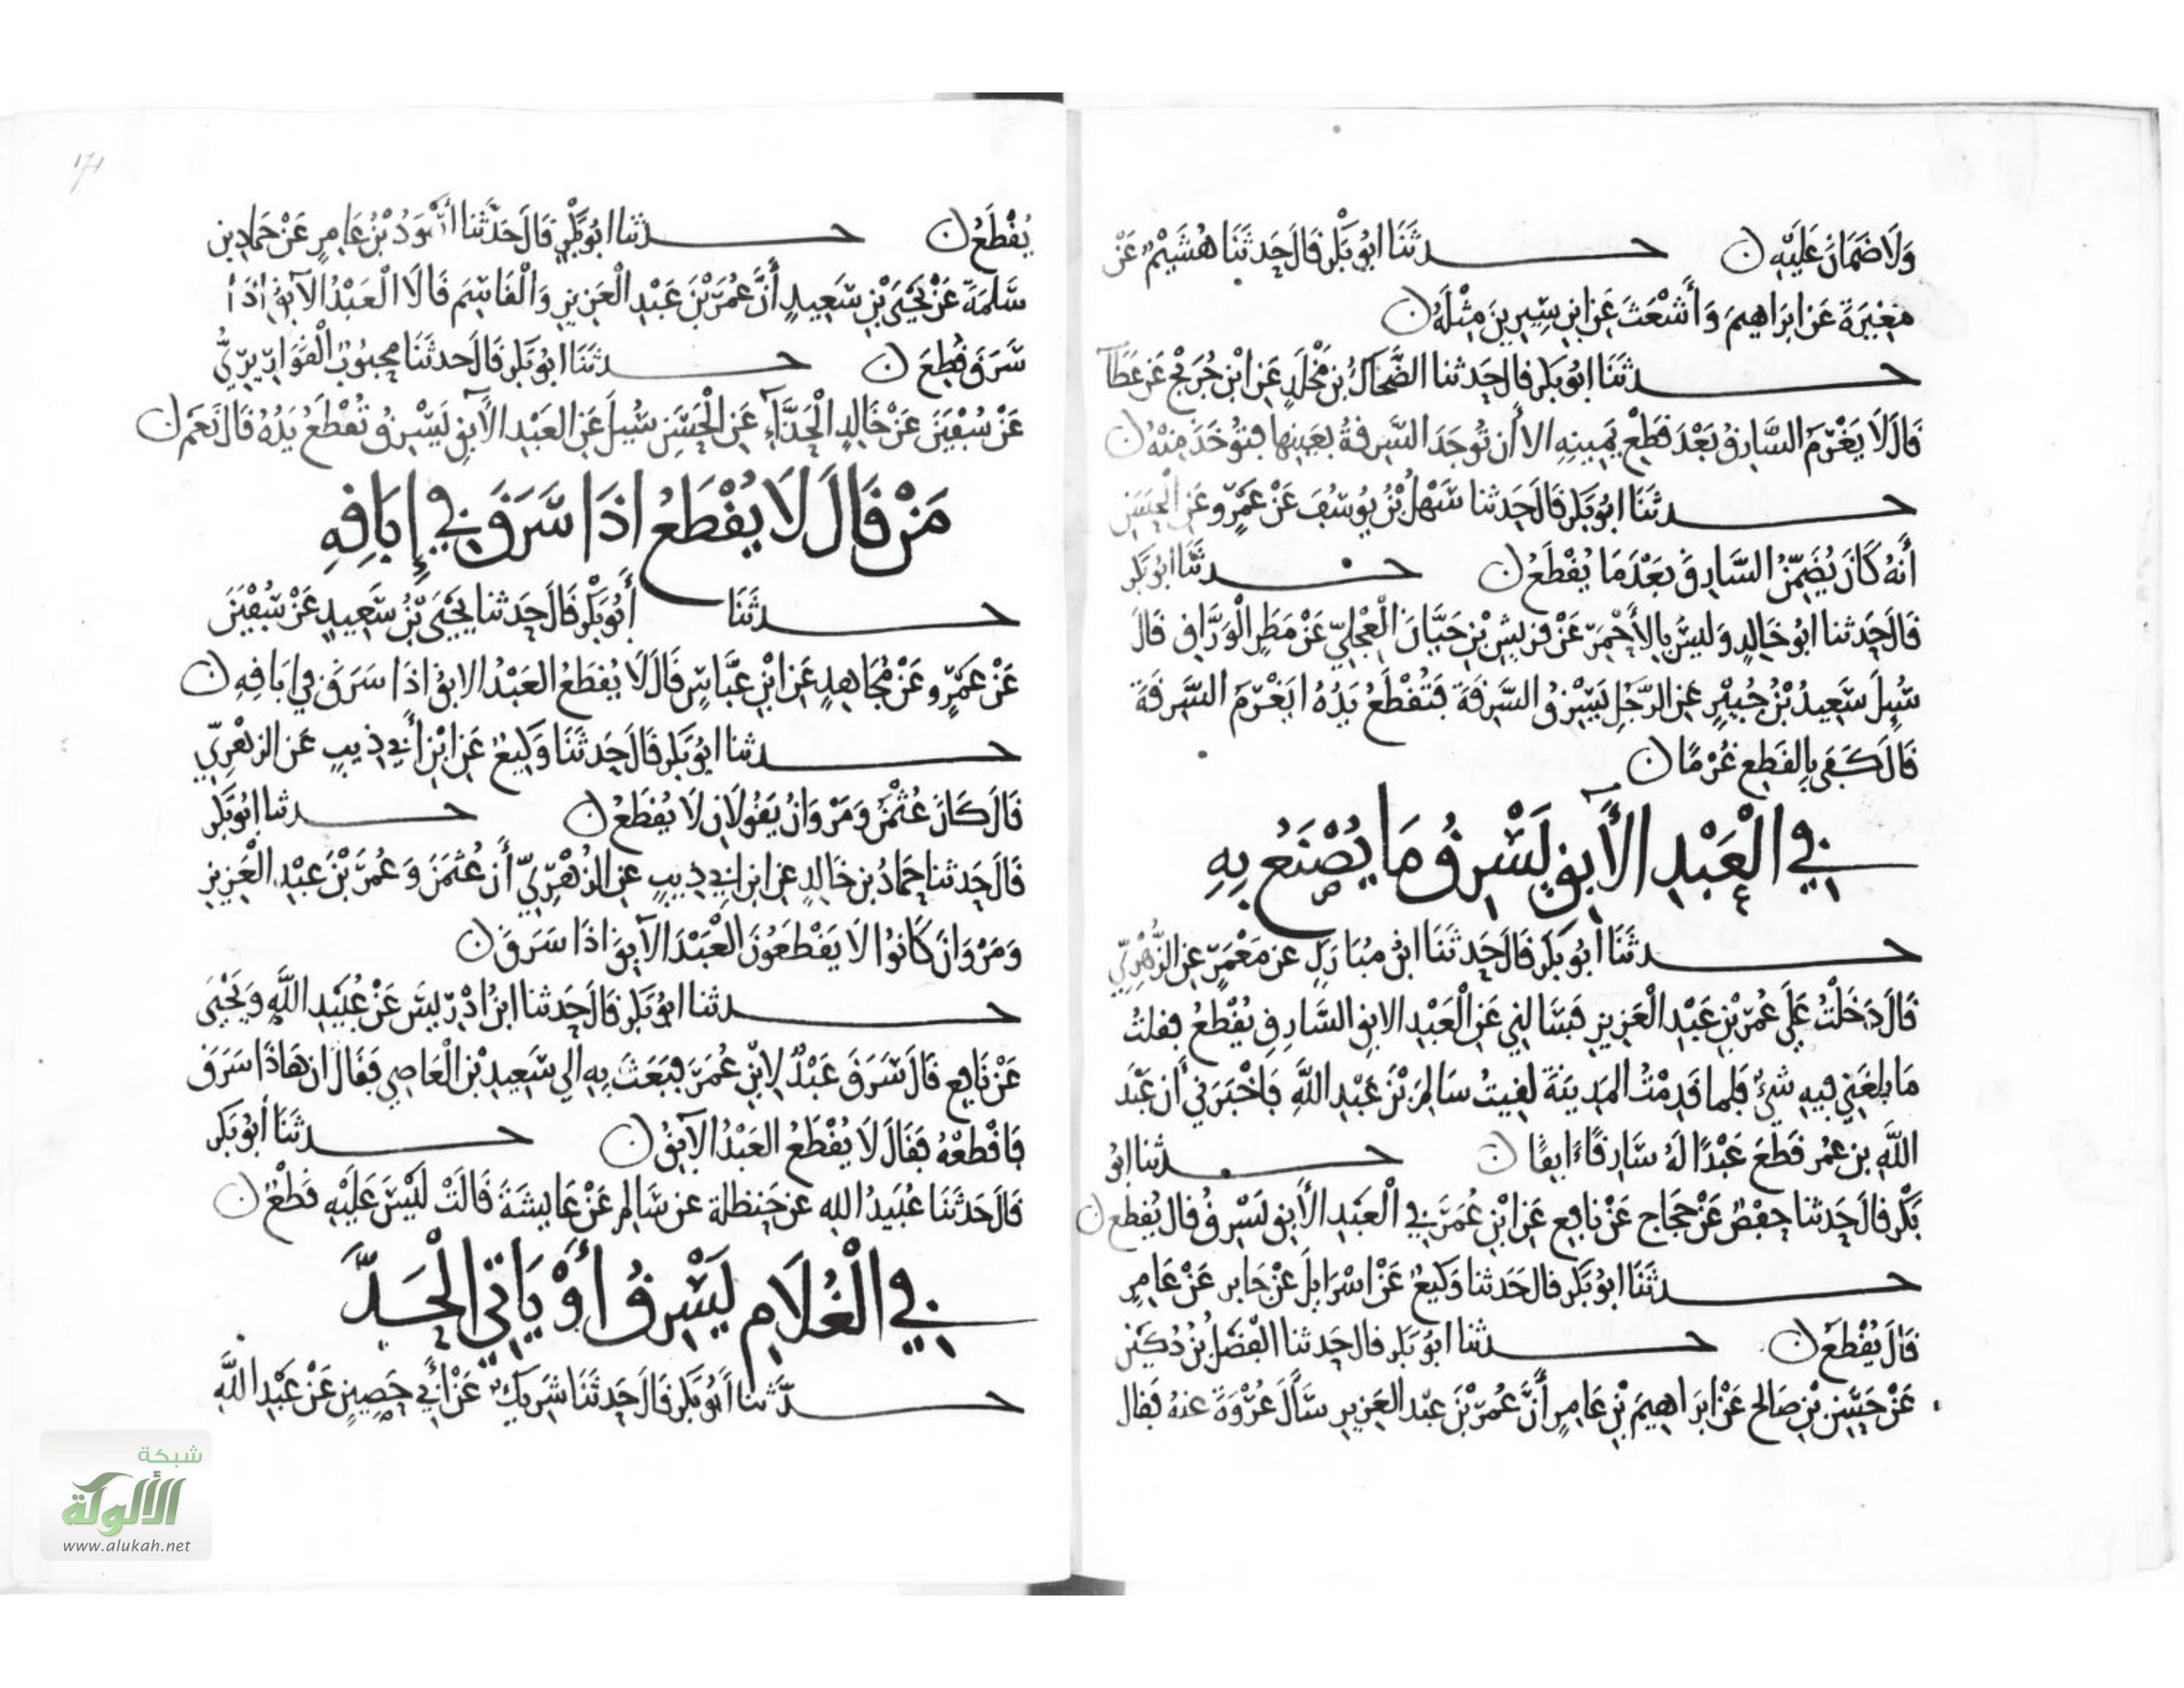 وَلَا ضَمَانَ عَلَيْهِ ن حـدثَنَا ابُو بَكْر قَالَ حَدثَنَا هُشَيْمٌ عَنْ
مغِيرَةَ عَن ابرَاهِيمَ وَأَشْعَثَ عَن ابنِ سِيرِينَ مِثْلَهُ ن
حـدثَنَا ابُو بَكر قال حَدثنا الضَّحاكُ بن مَخْلَدٍ عَن ابْن جُرَيْج عَن عَطَآ
قَالَ لَا يَغْرَمُ السَّارِقُ بَعْدَ قَطْعِ يَمِينِهِ الا أَن تُوجَدَ السَّرِقةُ بِعَيِنِها فتُوخَذَ مِنْهُ ن
حـدثَنَا ابُو بَكر قَالَ حَدثنا سَهْلُ بْنُ يُوسُفَ عَنْ عَمْرٍو عَن الْحَسَنِ
أَنهُ كَانَ يُضَمِّنُ السَّارِقَ بَعْدَ مَا يُقْطَعُ ن حـدثَنَا ابُو بَكر
قَالَ حَدثنا ابُو خَالدٍ وَليسَ بِالأَحْمَرِ عَنْ قُرَيشِ بْنِ حَيَّانَ الْعِجْلِيِّ عَنْ مَطَرٍ الْوَرَّاقِ قالَ
سُيِلَ سَعِيدُ بْنُ جُبَيْرٍ عَنِ الرَّجُلِ يَسْرِقُ السَّرِقَةَ فَتُقْطَعُ يَدُهُ ايَغْرَمُ السَّرِقَةَ
قَالَ كَفَى بِالقَطعِ غُرْمًا ن
في الْعَبْدِ الأَآبِقِ يَسْرِقُ مَا يُصْنَعُ بِهِ
حـدثَنَا أبُو بَكر قَالَ حَدثَنَا ابنُ مُبَارَكٍ عن مَعْمَرٍ عن الزُّهْرِيِّ
قَالَ دَخَلْتُ عَلَى عُمَرَ بْنِ عَبْدِ الْعَزِيزِ فَسَالنِي عَنِ الْعَبْدِ الابِقِ السَّارِقِ يُقْطَعُ فقلتُ
مَا بلغَنِي فيهِ شيْءٌ فلما قَدِمْتُ المَدِينَةَ لَقِيتُ سَالِمَ بْنَ عَبْدِ اللَّهِ فَاخْبَرَنِي أَن عَبْدَ
اللهِ بن عُمَر قَطَعَ عَبْدًا لَهُ سَارِقًا ءَابِقًا ن حـدثنا ابُو
بَكْر قالَ حَدثنا حَفْصٌ عَنْ حَجَّاج عَنْ نَافِعٍ عَنِ ابْنِ عُمَرَ فِي الْعَبْدِ الأَآبِقِ يَسْرِقُ قال يُقطع ن
حـدثَنَا ابُو بَكر قال حَدثنا وَكيعٌ عَنْ اسْرَايلَ عنْ جَابر عَنْ عَامِرٍ
قَالَ يُقْطَعُ ن حـدثنا ابُو بَكر قال حَدثنا الفَضْلُ بْنُ دُكَيْنٍ
عَنْ حَسَنِ بْنِ صَالحٍ عَنْ ابرَاهِيمَ بْنِ عَامِرٍ أَنَّ عُمَرَ بْنَ عَبْدِ العَزِيزِ سَأَلَ عُرْوَةَ عنهُ فَقالَ
١٧١
يُقْطَعُ ن حـدثنا ابُو بَكْرٍ قَالَ حَدَّثَنَا أَسْوَدُ بْنُ عَامِرٍ عَنْ حَمادِ بن
سَلَمَةَ عَنْ يَحْيَى بْنِ سَعِيدٍ أَنَّ عُمَرَ بْنَ عَبْدِ الْعَزِيزِ وَالْقَاسِمَ قَالَا الْعَبْدُ الآبِقُ اذَا
سَرَقَ قُطِعَ ن حـدثَنَا ابُو بَكر قَالَ حَدثَنَا محبُوبٌ الْقَوَارِيرِيُّ
عَنْ سُفْيَنَ عَنْ خَالدٍ الْحَذَّآءِ عَنِ الْحَسَنِ سُيلَ عَنِ العَبْدِ الآبِقِ يَسْرِقُ تُقْطَعُ يَدُهُ قَالَ نَعَمْ ن
مَنْ قَالَ لَا يُقْطَعُ اذَا سَرَقَ فِي إِبَاقِهِ
حـدثَنَا أَبُو بَكْر قَالَ حَدثنا يَحْيَى بْنُ سَعِيدٍ عَنْ سُفْيَنَ
عَنْ عَمْرٍو عَنْ مُجَاهِدٍ عَنِ ابْنِ عَبَّاسٍ قَالَ لَا يُقطَعُ العَبْدُ الابِقُ اذَا سَرَقَ في ابَاقِهِ ن
حـدثنا ابُو بَكر قَالَ حَدثَنَا وَكِيعٌ عَنِ ابْنِ أَبِي ذِيبٍ عَن الزهْرِيِّ
قَالَ كَانَ عُثْمَنُ وَمَرْوَانُ يَقُولَانِ لَا يُقطَعُ ن حـدثنا ابُو بَكر
قَالَ حَدثنا حَمادُ بن خَالدٍ عن ابن ابي ذِيبٍ عن الزهْرِيِّ أَن عُثمَنَ وَعُمَرَ بْنَ عَبْدِ الْعَزِيزِ
وَمَرْوَانَ كَانُوا لَا يَقْطَعُونَ الْعَبْدَ الآبِقَ اذَا سَرَقَ ن
حـدثنا ابُو بَكر قَالَ حَدثنا ابنُ ادْرِيسَ عَنْ عُبَيْدِ اللَّهِ وَيَحْيَى
عَنْ نَافِعٍ قَالَ سَرَقَ عَبْدٌ لِابْنِ عُمَرَ فَبَعَثَ بِهِ الى سَعِيدِ بْنِ الْعَاصِي فَقَالَ ان هَاذَا سَرَقَ
فَاقْطَعْهُ فَقَالَ لَا يُقْطَعُ العَبْدُ الآبِقُ ن حـدثَنَا أبُو بَكر
قَالَ حَدثَنَا عُبَيدُ اللهِ عن حَنظلة عن سَالمٍ عَنْ عَايِشَةَ قَالَتْ لَيْسَ عَلَيْهِ قَطْعٌ ن
في الْغُلَامِ يَسْرِقُ أَوْ يَاتِي الْحَدَّ
حـدَّثنا أَبُو بَكر قَالَ حَدثَنَا شَرِيكٌ عَنْ أَبِي حَصِينٍ عَنْ عَبْدِ اللَّهِ
شبكة
الألوكة
www.alukah.net